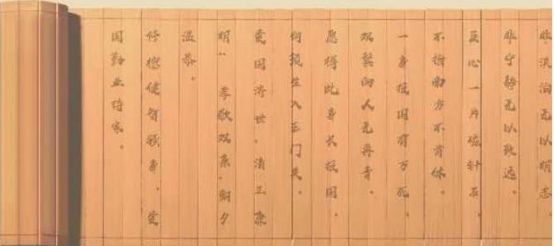 非淡泊无以明志
非宁静无以致远。
臣心一片磁针石，
不指南方不肯休。
一身报国有万死，
双鬓向人无再青。
愿得此身长报国，
何须生入玉门关。
爱国济世、清正廉
明、孝敬双亲、朝夕
温恭。
修德健智身、爱
国勤业持家。